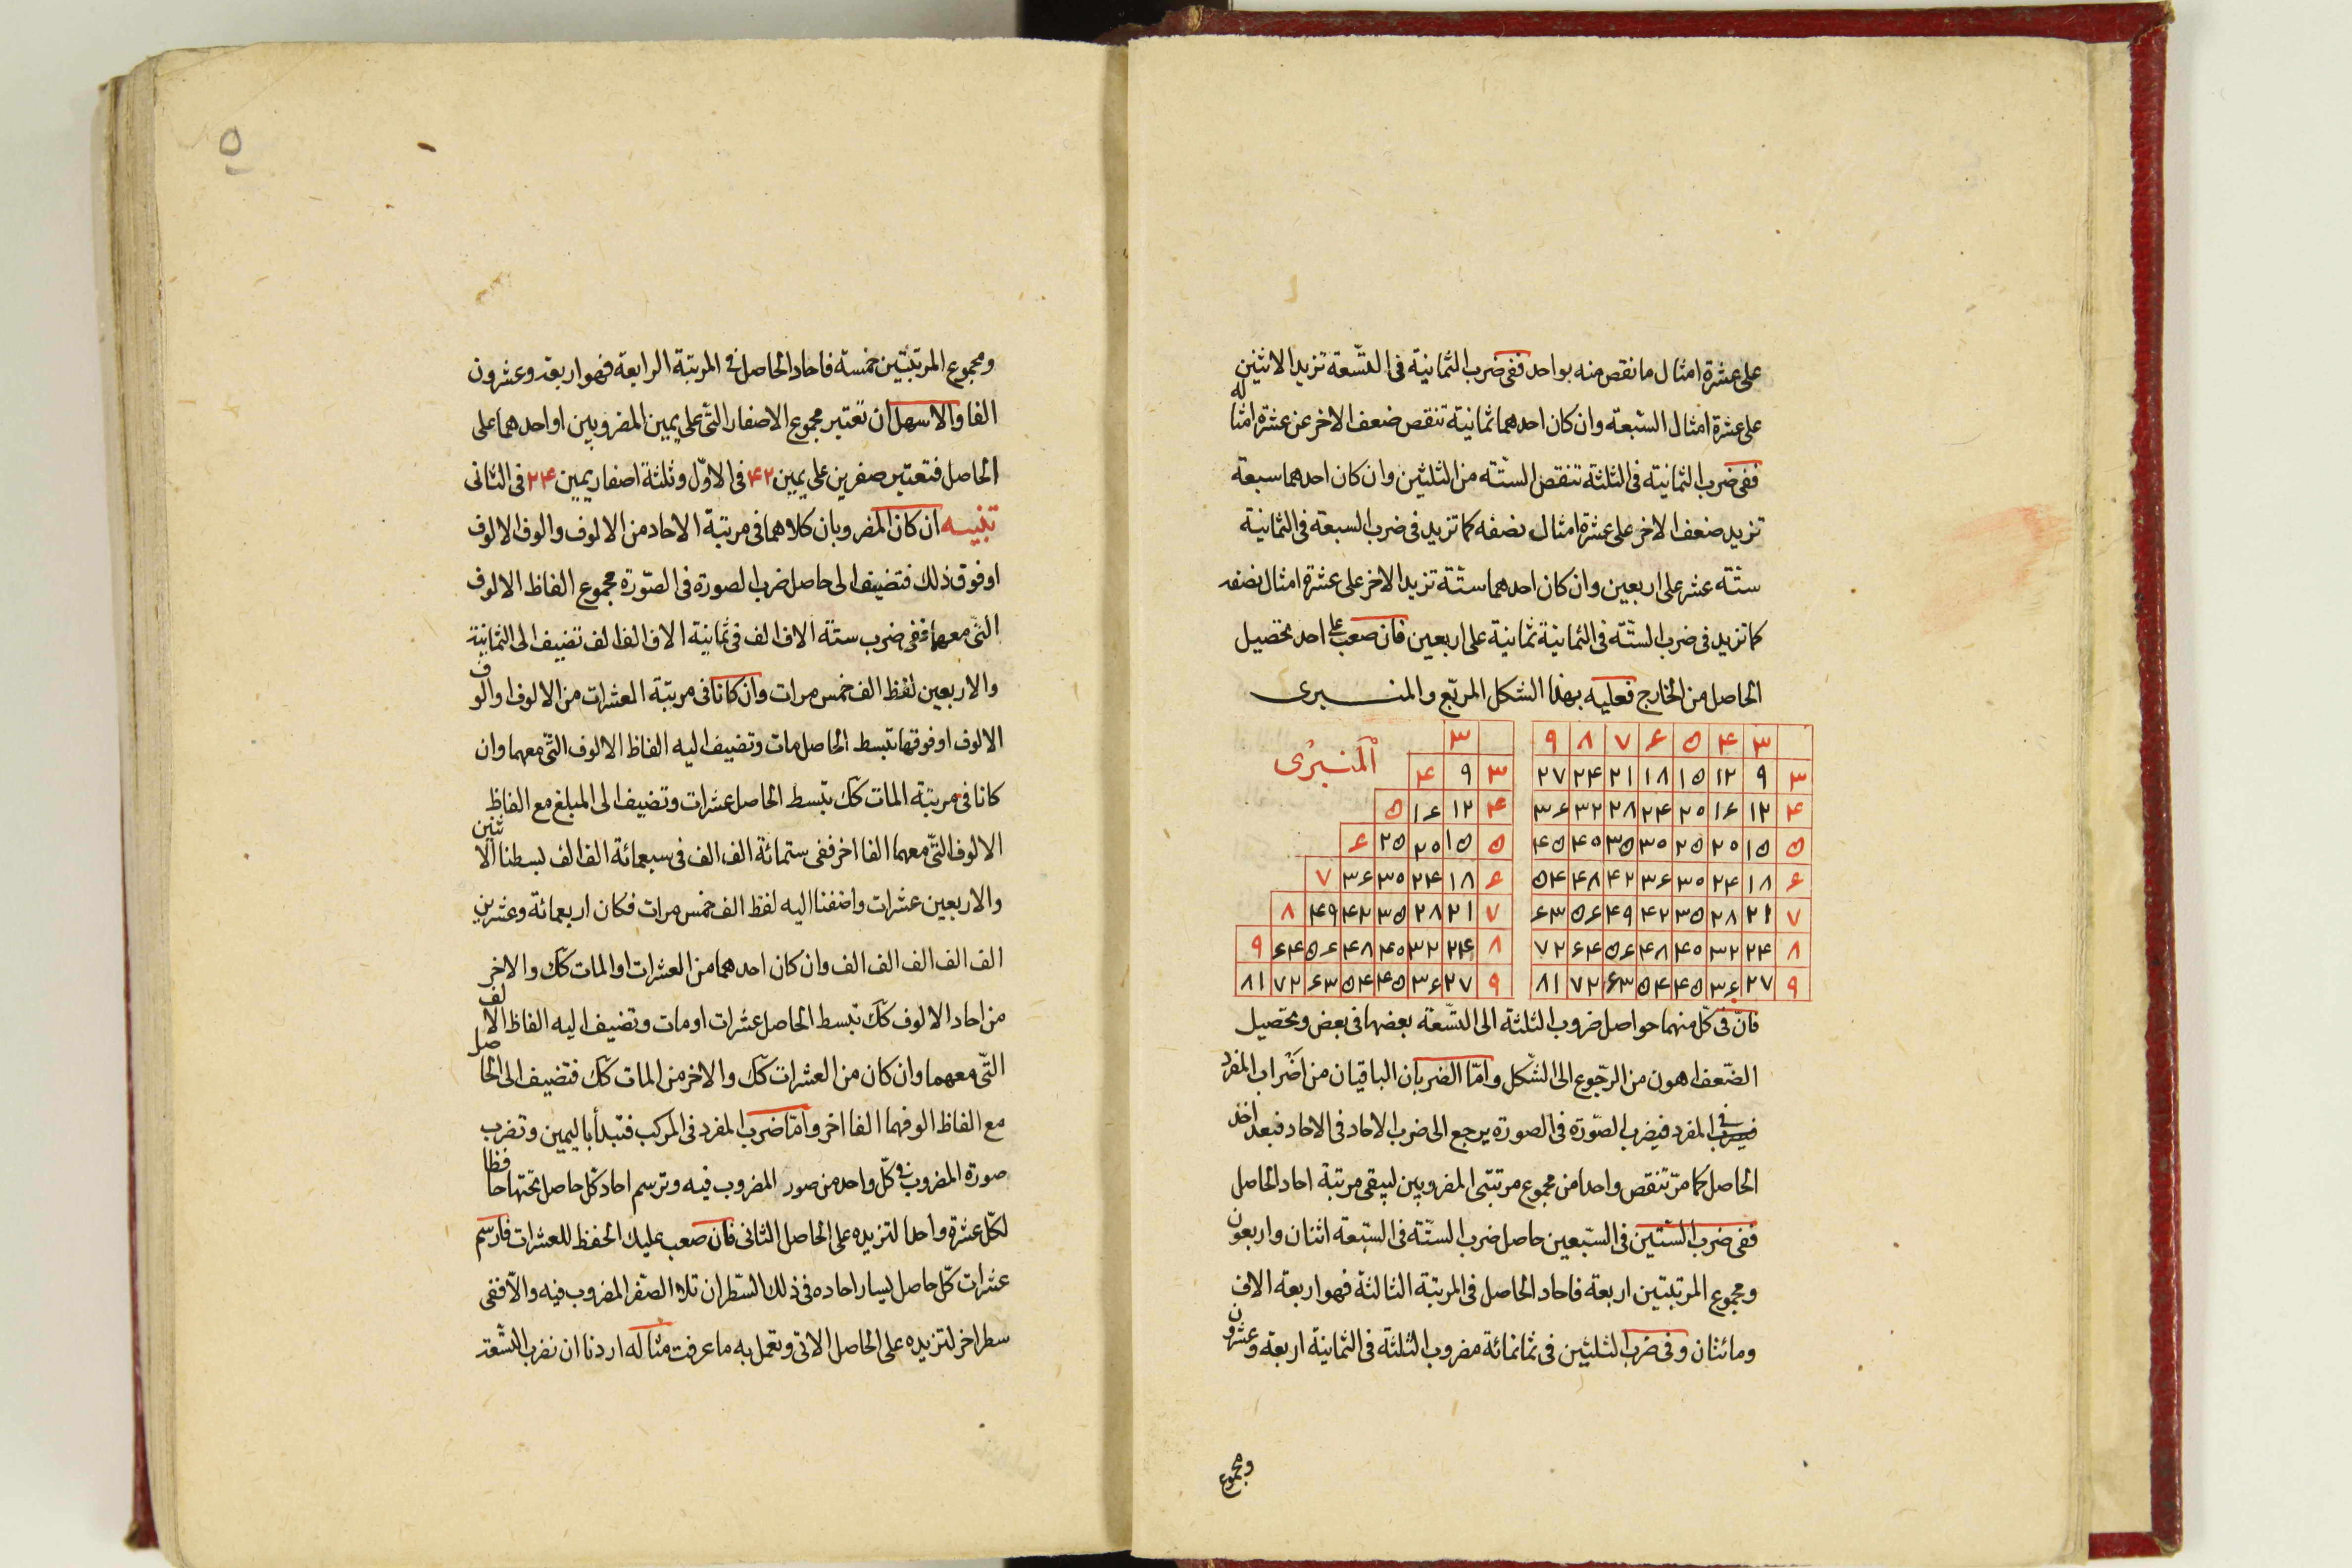 على عشرة امثال ما نقص منه بواحد ففى ضرب الثمانية فى التسعة تزيد الاثنين
على عشرة امثال السبعة وان كان احدهما ثمانية تنقص ضعف الاخر عن عشرة امثاله
ففى ضرب الثمانية فى الثلثة تنقص الستة من الثلثين وان كان احدهما سبعة
تزيد ضعف الاخر على عشرة امثال نصفه كما تزيد فى ضرب السبعة فى الثمانية
ستة عشر على اربعين وان كان احدهما ستة تزيد الاخر على عشرة امثال نصفه
كما تزيد فى ضرب الستة فى الثمانية ثمانية على اربعين فان صعب على احد تحصيل
الحاصل من الخارج فعليه بهذا الشكل المربع والمنبرى
۳ ۴ ۵ ۶ ۷ ۸ ۹
۳ ۹ ۱۲ ۱۵ ۱۸ ۲۱ ۲۴ ۲۷
۴ ۱۲ ۱۶ ۲۰ ۲۴ ۲۸ ۳۲ ۳۶
۵ ۱۵ ۲۰ ۲۵ ۳۰ ۳۵ ۴۰ ۴۵
۶ ۱۸ ۲۴ ۳۰ ۳۶ ۴۲ ۴۸ ۵۴
۷ ۲۱ ۲۸ ۳۵ ۴۲ ۴۹ ۵۶ ۶۳
۸ ۲۴ ۳۲ ۴۰ ۴۸ ۵۶ ۶۴ ۷۲
۹ ۲۷ ۳۶ ۴۵ ۵۴ ۶۳ ۷۲ ۸۱
المنبرى
۳
۳ ۹ ۴
۴ ۱۲ ۱۶ ۵
۵ ۱۵ ۲۰ ۲۵ ۶
۶ ۱۸ ۲۴ ۳۰ ۳۶ ۷
۷ ۲۱ ۲۸ ۳۵ ۴۲ ۴۹ ۸
۸ ۲۴ ۳۲ ۴۰ ۴۸ ۵۶ ۶۴ ۹
۹ ۲۷ ۳۶ ۴۵ ۵۴ ۶۳ ۷۲ ۸۱
فان فى كل منهما حواصل ضروب الثلثة الى التسعة بعضها فى بعض وتحصيل
الضعف اهون من الرجوع الى الشكل واما الضربان الباقيان من اضراب المفرد
فى المفرد فيضرب الصورة فى الصورة يرجع الى ضرب الاحاد فى الاحاد فبعد اخذ
الحاصل كما مر تنقص واحدا من مجموع مرتبتى المضروبين ليبقى مرتبة احاد الحاصل
ففى ضرب الستين فى السبعين حاصل ضرب الستة فى السبعة اثنان واربعون
ومجموع المرتبتين اربعة فاحاد الحاصل فى المرتبة الثالثة فهو اربعة الاف
ومائتان وفى ضرب الثلثين فى ثمانمائة مضروب الثلثة فى الثمانية اربعة وعشرون
ومجموع
۵
ومجموع المرتبتين خمسة فاحاد الحاصل فى المرتبة الرابعة فهو اربعة وعشرون
الفا والاسهل ان تعتبر مجموع الاصفار التى على يمين المضروبين او احدهما على
الحاصل فتعتبر صفرين على يمين ۴۲ فى الاول وثلثة اصفار يمين ۲۴ فى الثانى
تنبيه ان كان المضروبان كلاهما فى مرتبة الاحاد من الالوف والوف الالوف
او فوق ذلك فتضيف الى حاصل ضرب الصورة فى الصورة مجموع الفاظ الالوف
التى معهما ففى ضرب ستة الاف الف فى ثمانية الاف الف الف تضيف الى الثمانية
والاربعين لفظ الف خمس مرات وان كانا فى مرتبة العشرات من الالوف او الوف
الالوف او فوقها تبسط الحاصل مات وتضيف اليه الفاظ الالوف التى معهما وان
كانا فى مرتبة المات كك تبسط الحاصل عشرات وتضيف الى المبلغ مع الفاظ
الالوف التى معهما الفا اخر ففى ستمائة الف الف فى سبعمائة الف الف بسطنا الاثنين
والاربعين عشرات واضفنا اليه لفظ الف خمس مرات فكان اربعمائة وعشرين
الف الف الف الف الف وان كان احدهما من العشرات او المات كك والاخر
من احاد الالوف كك تبسط الحاصل عشرات او مات وتضيف اليه الفاظ الالف
التى معهما وان كان من العشرات كك والاخر من المات كك فتضيف الى الحاصل
مع الفاظ الوفهما الفا اخر واما ضرب المفرد فى المركب فتبدأ باليمين وتضرب
صورة المضروب فى كل واحد من صور المضروب فيه وترسم احاد كل حاصل تحتها حافظا
لكل عشرة واحدا لتزيده على الحاصل الثانى فان صعب عليك الحفظ للعشرات فارسم
عشرات كل حاصل ليسار احاده فى ذلك السطر ان تلا الصفر المضروب فيه والا ففى
سطر اخر لتزيده على الحاصل الاتى وتعمل به ما عرفت مثاله اردنا ان نضرب التسعة